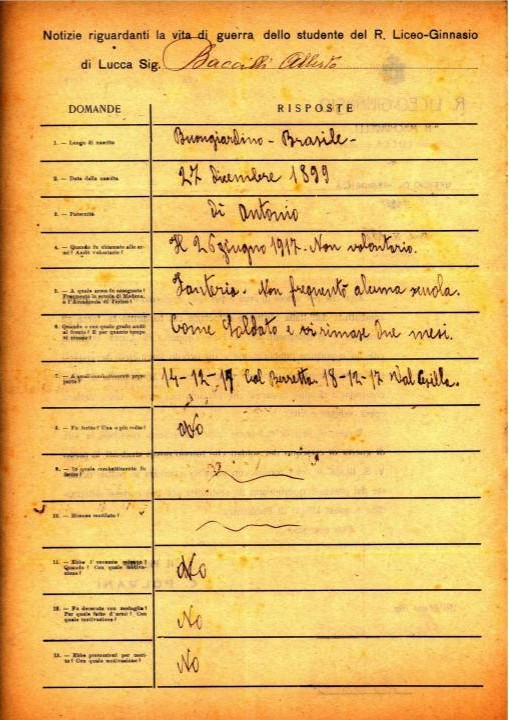 Notizie riguardanti la vita di guerra dello studente del R. Liceo-Ginnasio
di Lucca Sig. Baccelli Alberto
DOMANDE
RISPOSTE
1. — Luogo di nascita
Buongiardino - Brasile -
2. — Data della nascita
27 dicembre 1899
3. — Paternità
di Antonio
4. — Quando fu chiamato alle armi? Andò volontario?
Il 26 giugno 1917. Non volontario.
5. — A quale arma fu assegnato?
Frequentò la scuola di Modena,
o l'Accademia di Torino?
Fanteria. Non frequentò alcuna scuola.
6. Quando e con quale grado andò
al fronte? E per quanto tempo
vi rimase?
Come Soldato e vi rimase due mesi.
7. — A quali combattimenti
14-12-17 Col Berretta. 18-12-17 Val
8. — Fu ferito? Una o più volte?
No
9. — In quale combattimento fu
ferito?
10. — Rimase mutilato?
11. — Ebbe l'encomio
Quando? Con quale motiva-
zione?
No
12. — Fu decorato con medaglia?
Per quale fatto d'armi? Con
quale motivazione?
No
13. — Ebbe promozioni per meri-
to? Con quale motivazione?
No